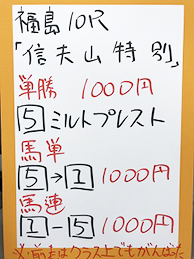 福島10R
「信夫山特別」
単勝 1000円
5 ミルトプレスト
馬単
5→1 1000円
馬連
1-5 1000円
※前走はクラス上でもがんばった